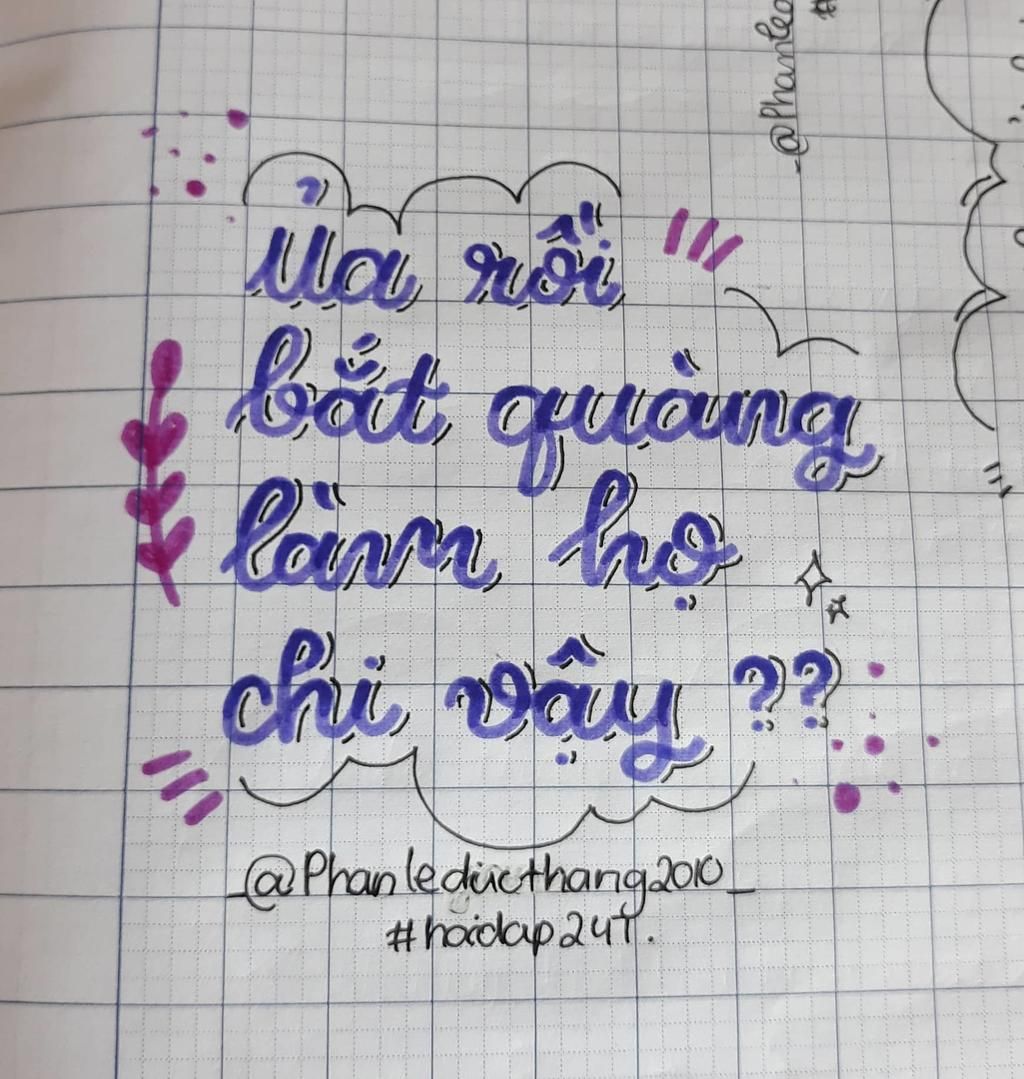 Ủa rồi
bắt quàng
làm họ
chi vậy ??
_@Phanleducthang2010_
#hoidap247.
_@Phanleo